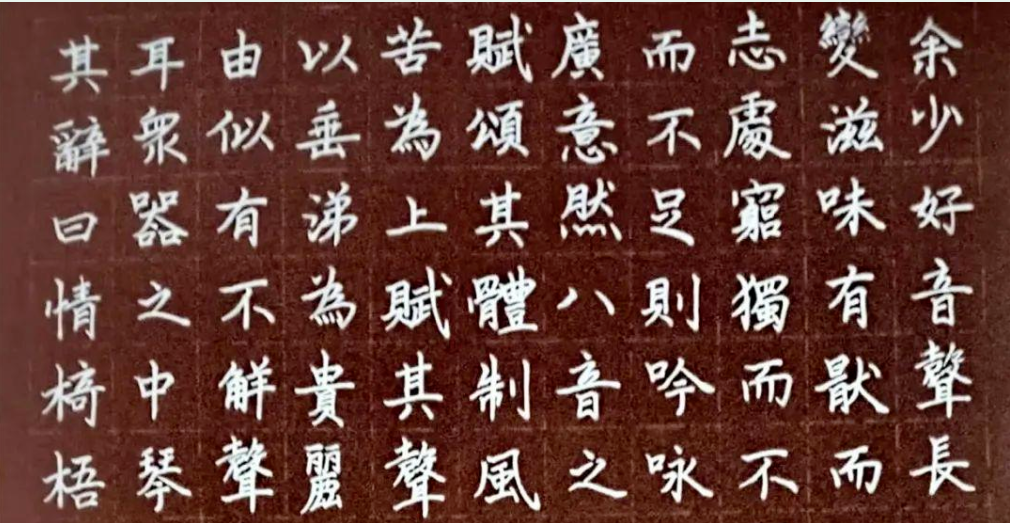 余少好音聲長
變滋味有猒而
志處窮獨而不
而不足則吟咏
廣意然八音之
賦頌其體制風
苦為上賦其聲
以垂涕為貴麗
由似有不觧聲
耳衆器之中琴
其辭曰情椅梧